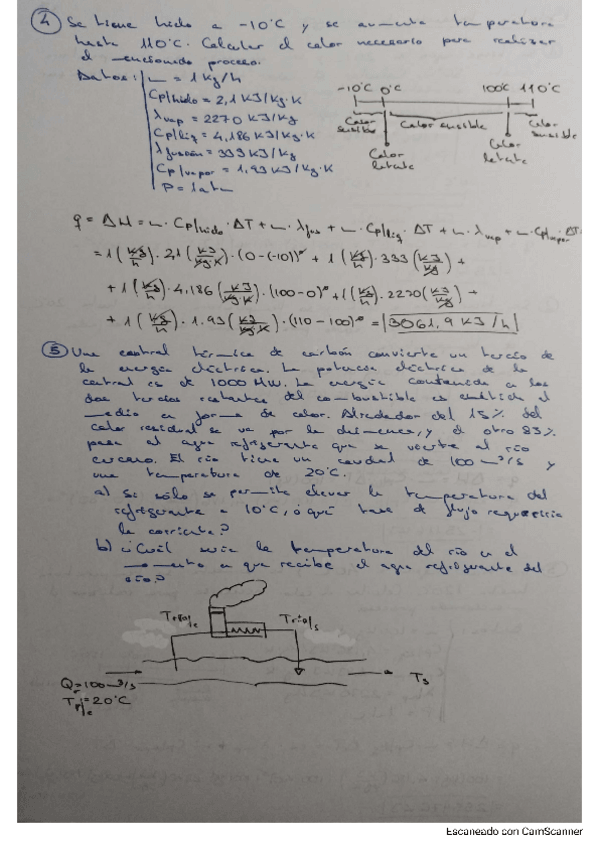 ④ Se tiene hielo a -10°C y se aumenta temperatura
hasta 110°C. Calcular el calor necesario para realizar
el mencionado proceso.
Datos: m = 1 kg/h
Cp/hielo = 2,1 KJ/kg·K
λvap = 2270 KJ/kg
Cp/liq = 4,186 KJ/kg·K
λfusión = 333 KJ/kg
Cp/vapor = 1,93 KJ/kg·K
P = 1 atm
-10°C 0°C 100°C 110°C
Calor sensible Calor sensible Calor sensible
Calor latente Calor latente
q = ΔH = m · Cp/hielo · ΔT + m · λfus + m · Cp/liq · ΔT + m · λvap + m · Cp/vapor · ΔT
= 1 (kg/h) · 2,1 (KJ/kg K) · (0-(-10))° + 1 (kg/h) · 333 (KJ/kg) +
+ 1 (kg/h) · 4,186 (KJ/kg K) · (100-0)° + 1 (kg/h) · 2270 (KJ/kg) +
+ 1 (kg/h) · 1,93 (KJ/kg K) · (110-100)° = 3061,9 KJ/h
⑤ Una central térmica de carbón convierte un tercio de
la energía eléctrica. La potencia eléctrica de la
central es de 1000 MW. La energía contenida en los
dos tercios restantes del combustible es emitida al
medio en forma de calor. Alrededor del 15% del
calor residual se va por la chimenea, y el otro 85%
pasa al agua refrigerante que se vierte al río
cercano. El río tiene un caudal de 100 m³/s y
una temperatura de 20°C.
a) Si sólo se permite elevar la temperatura del
refrigerante a 10°C, ¿qué tasa de flujo requeriría
la corriente?
b) ¿Cuál sería la temperatura del río en el
momento en que recibe el agua refrigerante del
río?
Q = 100 m³/s
= 20°C
Escaneado con CamScanner